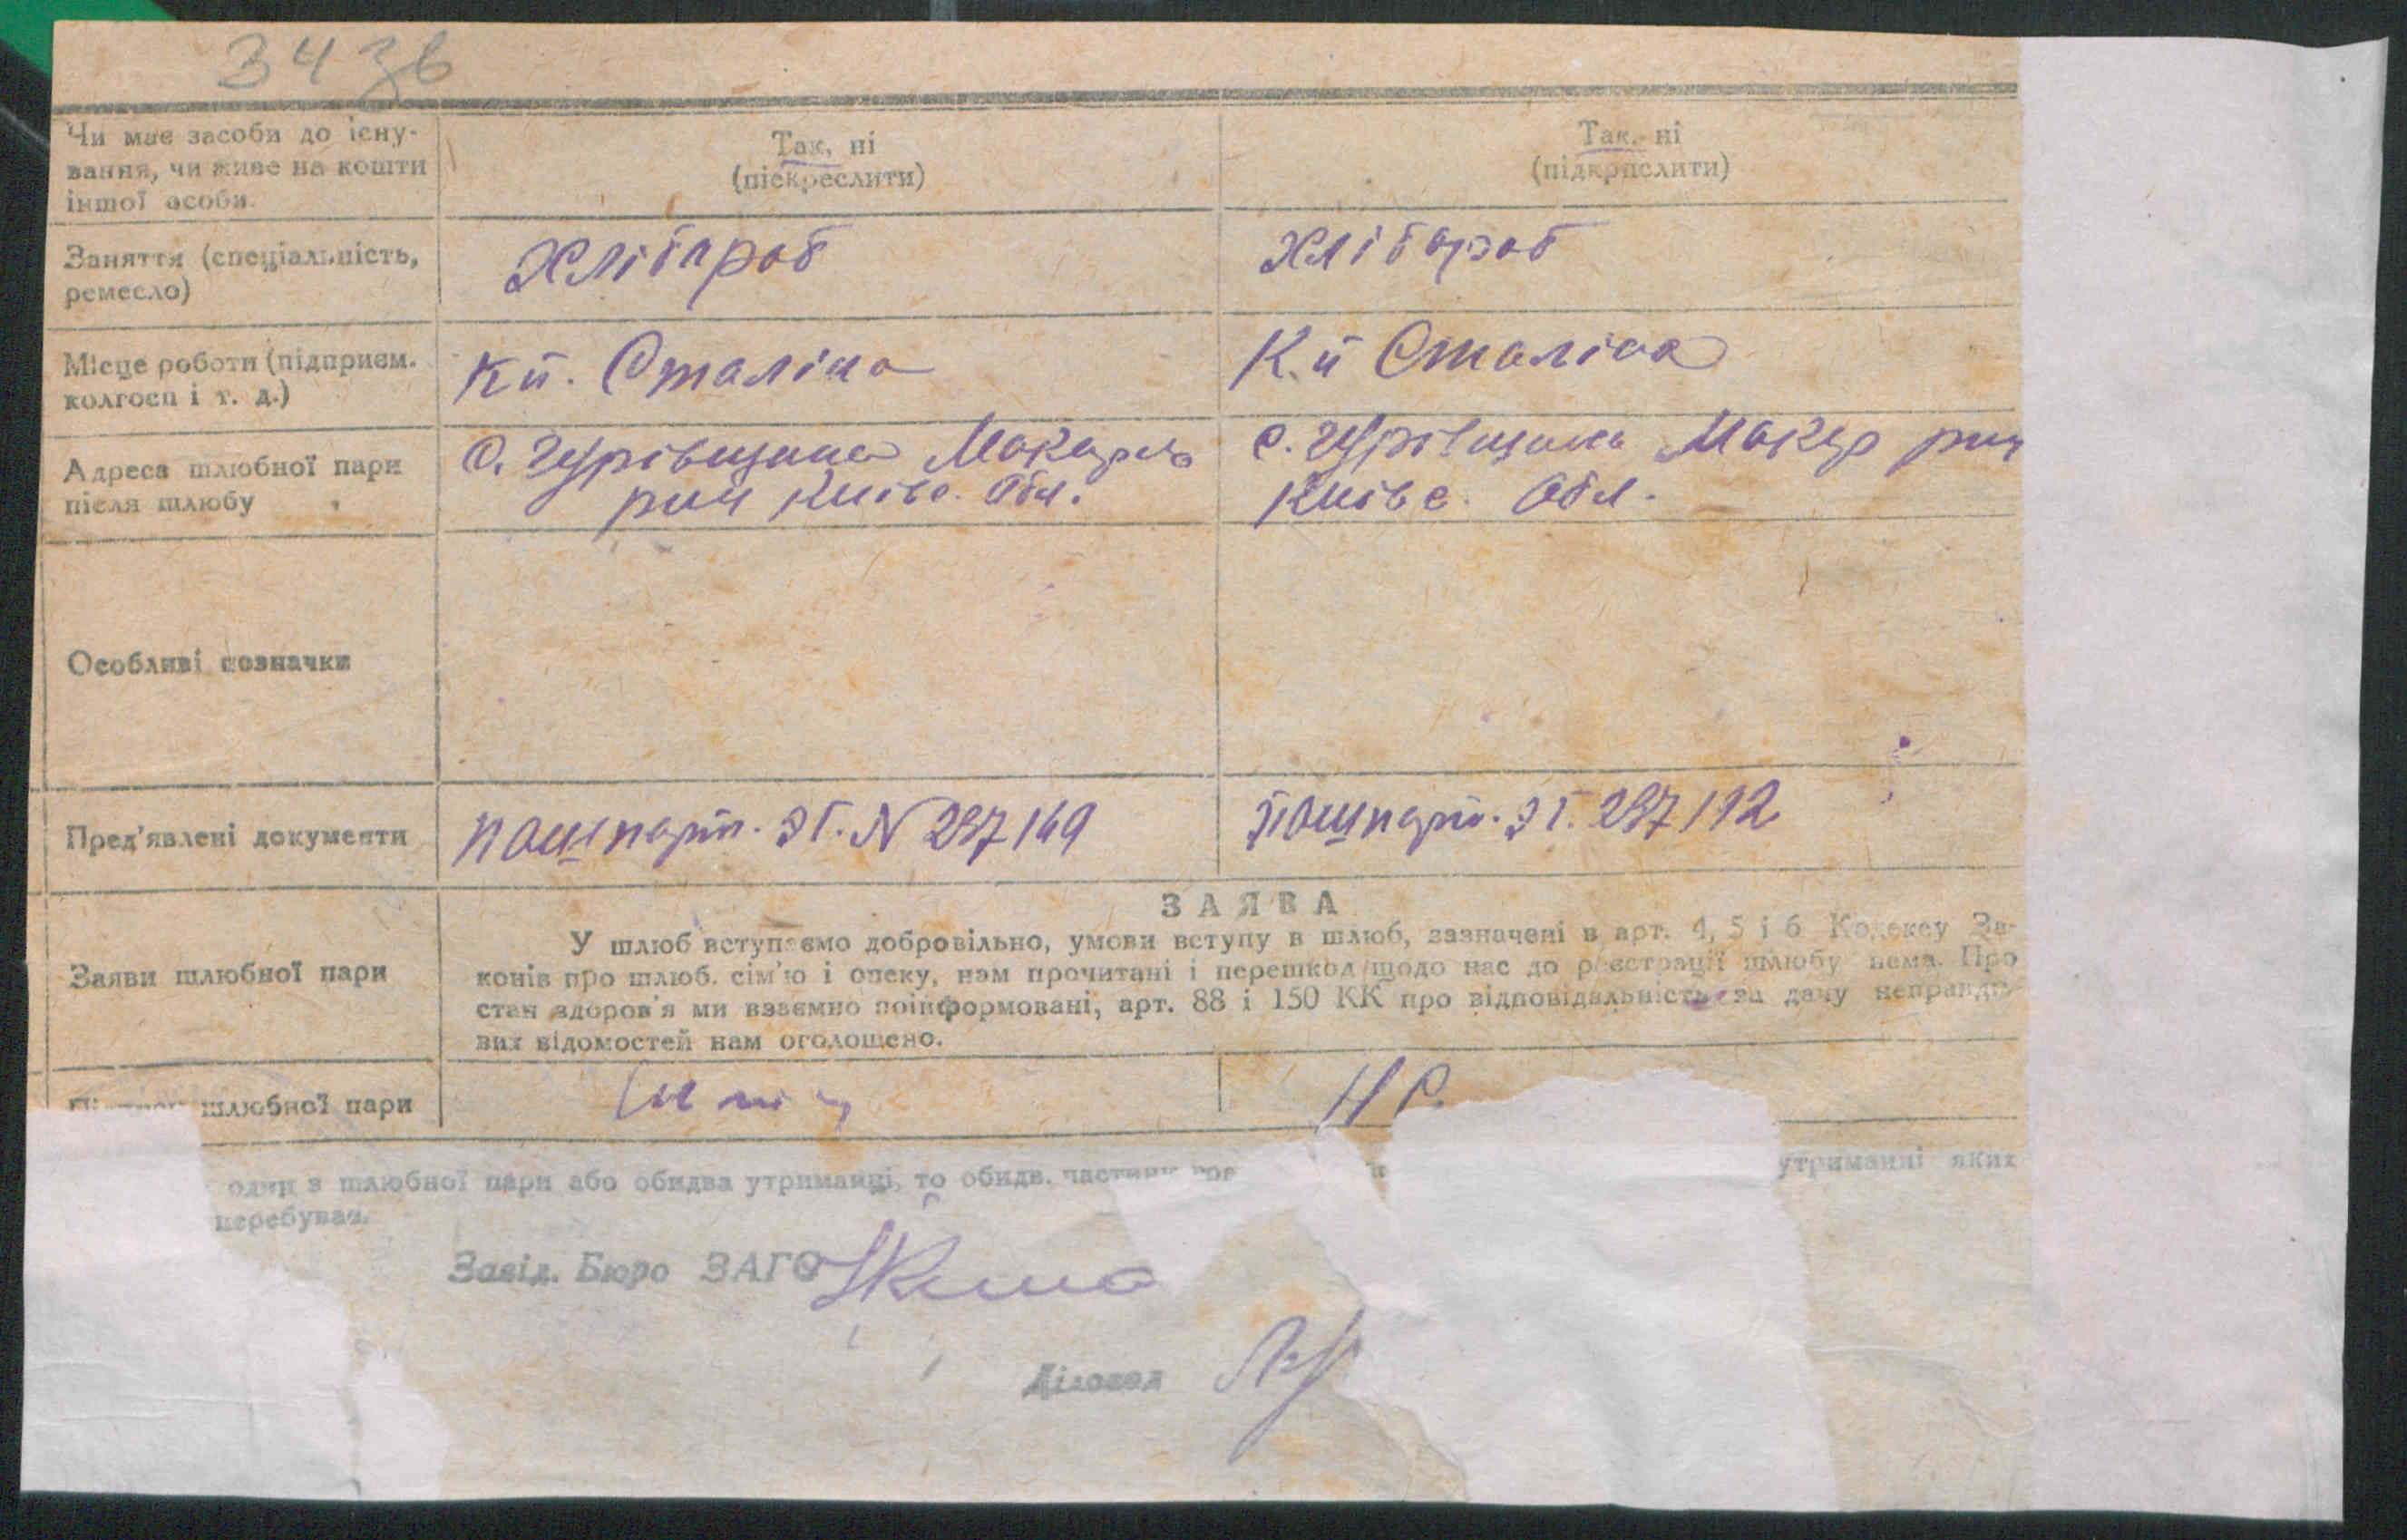 34 зв
Чи має засоби до існу-
вання, чи живе на кошти
іншої особи.
Так, ні
(пієкреслити)
Так, ні
(підкрислити)
Заняття (спеціальність,
ремесло)
Хлібароб
Хлібароб
Місце роботи (підприєм.
колгосп і т. д.)
Кп. Сталіна
К.п Сталіна
Адреса шлюбної пари
після шлюбу
с. Гурівщина Макарів
рну Київс. Обл.
с. Гурівщина Макар рну
Київс. Обл.
Особливі позначки
Пред'явлені документи
пошпарт. ЭГ. N 297169
Пошпарт. ЭГ. 297192
ЗАЯВА
Заяви шлюбної пари
У шлюб вступаємо добровільно, умови вступу в шлюб, зазначені в арт. 4, 5 і 6 Кодексу За-
конів про шлюб. сім'ю і опеку, нам прочитані і перешкод щодо нас до реєстрації шлюбу нема. Про
стан здоров'я ми взаємно поінформовані, арт. 88 і 150 КК про відповідальність за дачу неправди-
вих відомостей нам оголошено.
шлюбної пари
НР.
один з шлюбної пари або обидва утриманці, то обидв. частини утриманні яких
перебував.
Завід. Бюро ЗАГС
Діловод